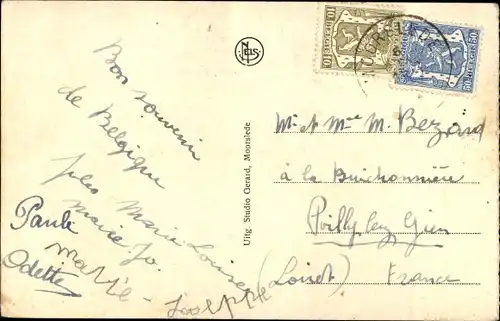 Bon souvenir
de Belgique
Marie Louise
Marie Jo.
Paule
Odette
Marie-Josèphe
Uitg. Studio Gerard, Moorslede
NELS
BELGIQUE 10
BELGIE 50
Mr et Mme M. Bézard
à la Buichonnière
Poilly lez Gien
(Loiret) France